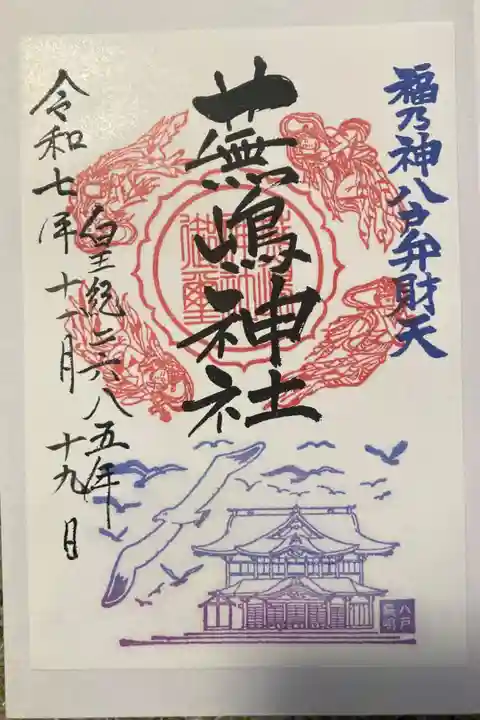 福乃神八戸弁財天
蕪嶋神社
皇紀二六八五年
令和七年十一月十九日
八戸
蕪嶋